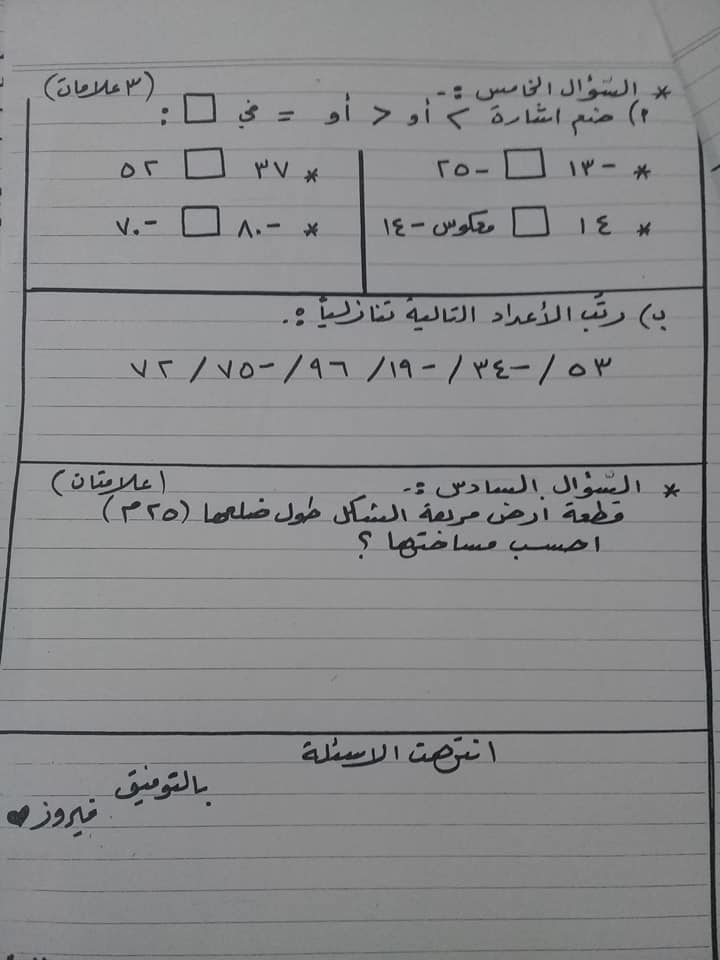 * السّؤال الخامس :- (٣ علامات)
أ) ضع اشارة < أو > أو = في □ :
* -١٣ □ -٢٥
* ٣٧ □ ٥٢
* ١٤ □ معكوس -١٤
* -٨٠ □ -٧٠
ب) رتّب الأعداد التالية تنازلياً :.
٥٣ / -٣٤ / -١٩ / ٩٦ / -٧٥ / ٧٢
* السّؤال السادس :- (علامتان)
قطعة أرض مربعة الشكل طول ضلعها (٢٥م)
احسب مساحتها ؟
انتهت الاسئلة
بالتوفيق
فيروز ♥